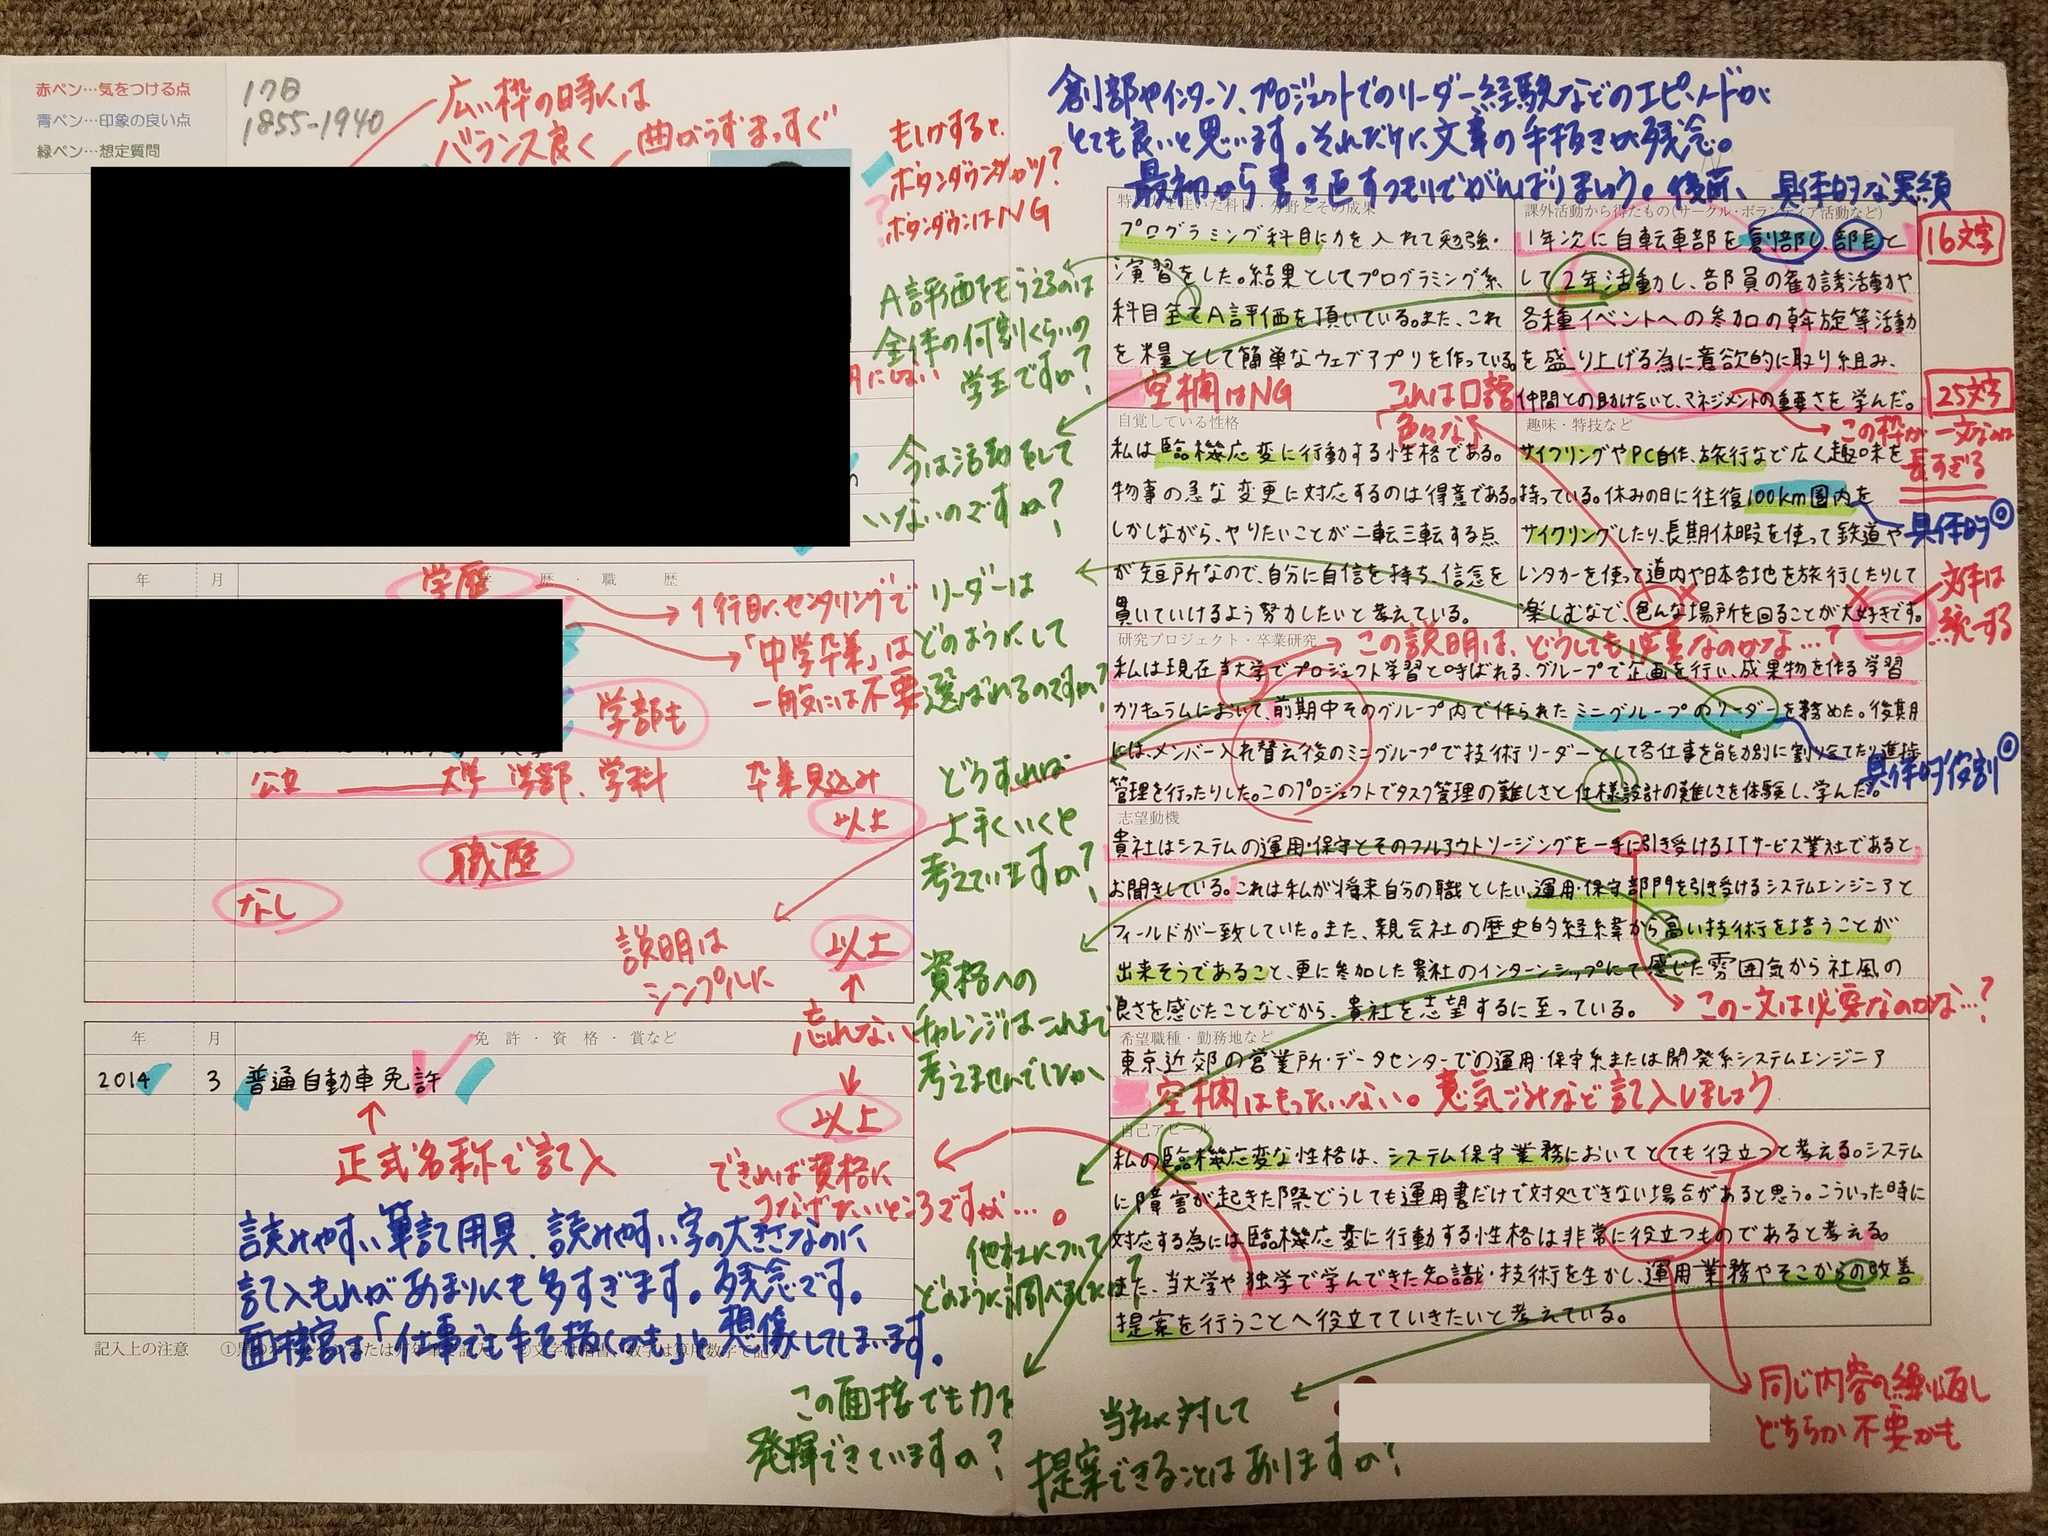 赤ペン…気をつける点
青ペン…印象の良い点
緑ペン…想定質問
17日
1855-1940
広い枠の時には
バランス良く
曲がらずまっすぐ
もしかすると、
ボタンダウンシャツ?
ボタンダウンはNG
A評価をもらえるのは
全体の何割くらいの
学生ですか?
今は活動をして
いないのですか?
年 月 学 歴・職 歴
学歴
1行目に、センタリングで
「中学卒業」は
一般には不要
学部も
公立 大学 学部、学科 卒業見込み
以上
職歴
なし
以上
説明は
シンプルに
忘れない
リーダーは
どのようにして
選ばれるのですか?
どうすれば
上手くいくと
考えていますか?
資格への
チャレンジはこれまで
考えませんでしたか
年 月 免許・資格・賞など
2014 3 普通自動車免許
正式名称で記入
以上
できれば資格に
つなげたいところですが…。
他社について
どのように調べましたか?
読みやすい筆記用具、読みやすい字の大きさなのに
記入もれがあまりにも多すぎます。残念です。
面接官は「仕事でも手を抜くかも」と想像してしまいます。
記入上の注意
この面接でも力を
発揮できていますか?
創部やインターン、プロジェクトでのリーダー経験などのエピソードが
とても良いと思います。それだけに文章の手抜きが残念。
最初から書き直すつもりでがんばりましょう。
具体的な実績
プログラミング科目に力を入れて勉強・
演習をした。結果としてプログラミング系
科目全てA評価を頂いている。また、これ
を糧として簡単なウェブアプリを作っている。
空欄はNG
課外活動から得たもの(サークル・ボランティア活動など)
1年次に自転車部を創部し、部長と
して2年活動し、部員の勧誘活動や
各種イベントへの参加の斡旋等活動
を盛り上げる為に意欲的に取り組み、
仲間との助け合いと、マネジメントの重要さを学んだ。
16文字
25文字
この枠が一文なのは
長すぎる
これは口語
「色々な」
自覚している性格
私は臨機応変に行動する性格である。
物事の急な変更に対応するのは得意である。
しかしながら、やりたいことが二転三転する点
が短所なので、自分に自信を持ち、信念を
貫いていけるよう努力したいと考えている。
趣味・特技など
サイクリングやPC自作、旅行など広く趣味を
持っている。休みの日に往復100km圏内を
サイクリングしたり、長期休暇を使って鉄道や
レンタカーを使って道内や日本各地を旅行したりして
楽しむなど、色んな場所を回ることが大好きです。
具体的◎
文体は
統一する
研究プロジェクト・卒業研究
この説明は、どうしても必要なのかな…?
私は現在当大学でプロジェクト学習と呼ばれる、グループで企画を行い、成果物を作る学習
カリキュラムにおいて、前期中そのグループ内で作られたミニグループのリーダーを務めた。後期
には、メンバー入れ替え後のミニグループで技術リーダーとして各仕事を能力別に割り当てたり進捗
管理を行ったりした。このプロジェクトでタスク管理の難しさと仕様設計の難しさを体験し、学んだ。
具体的役割◎
志望動機
貴社はシステムの運用・保守とそのフルアウトソージングを一手に引き受けるITサービス業社であると
お聞きしている。これは私が将来自分の職としたい、運用・保守部門を引き受けるシステムエンジニアと
フィールドが一致していた。また、親会社の歴史的経緯から高い技術行を培うことが
出来そうであること、更に参加した貴社のインターンシップにて感じた雰囲気から社風の
良さを感じたことなどから、貴社を志望するに至っている。
この一文は必要なのかな…?
希望職種・勤務地など
東京近郊の営業所・データセンターでの運用・保守系または開発系システムエンジニア
空欄はもったいない。意気ごみなど記入しましょう
自己アピール
私の臨機応変な性格は、システム保守業務においてとても役立つと考える。システム
に障害が起きた際どうしても運用書だけで対処できない場合があると思う。こういった時に
対応する為には臨機応変に行動する性格は非常に役立つものであると考える。
また、当大学や独学で学んできた知識・技術を生かし、運用業務やそこからの改善
提案を行うことへ役立てていきたいと考えている。
同じ内容の繰り返し
どちらか不要かも
当社に対して
提案できることはありますか?